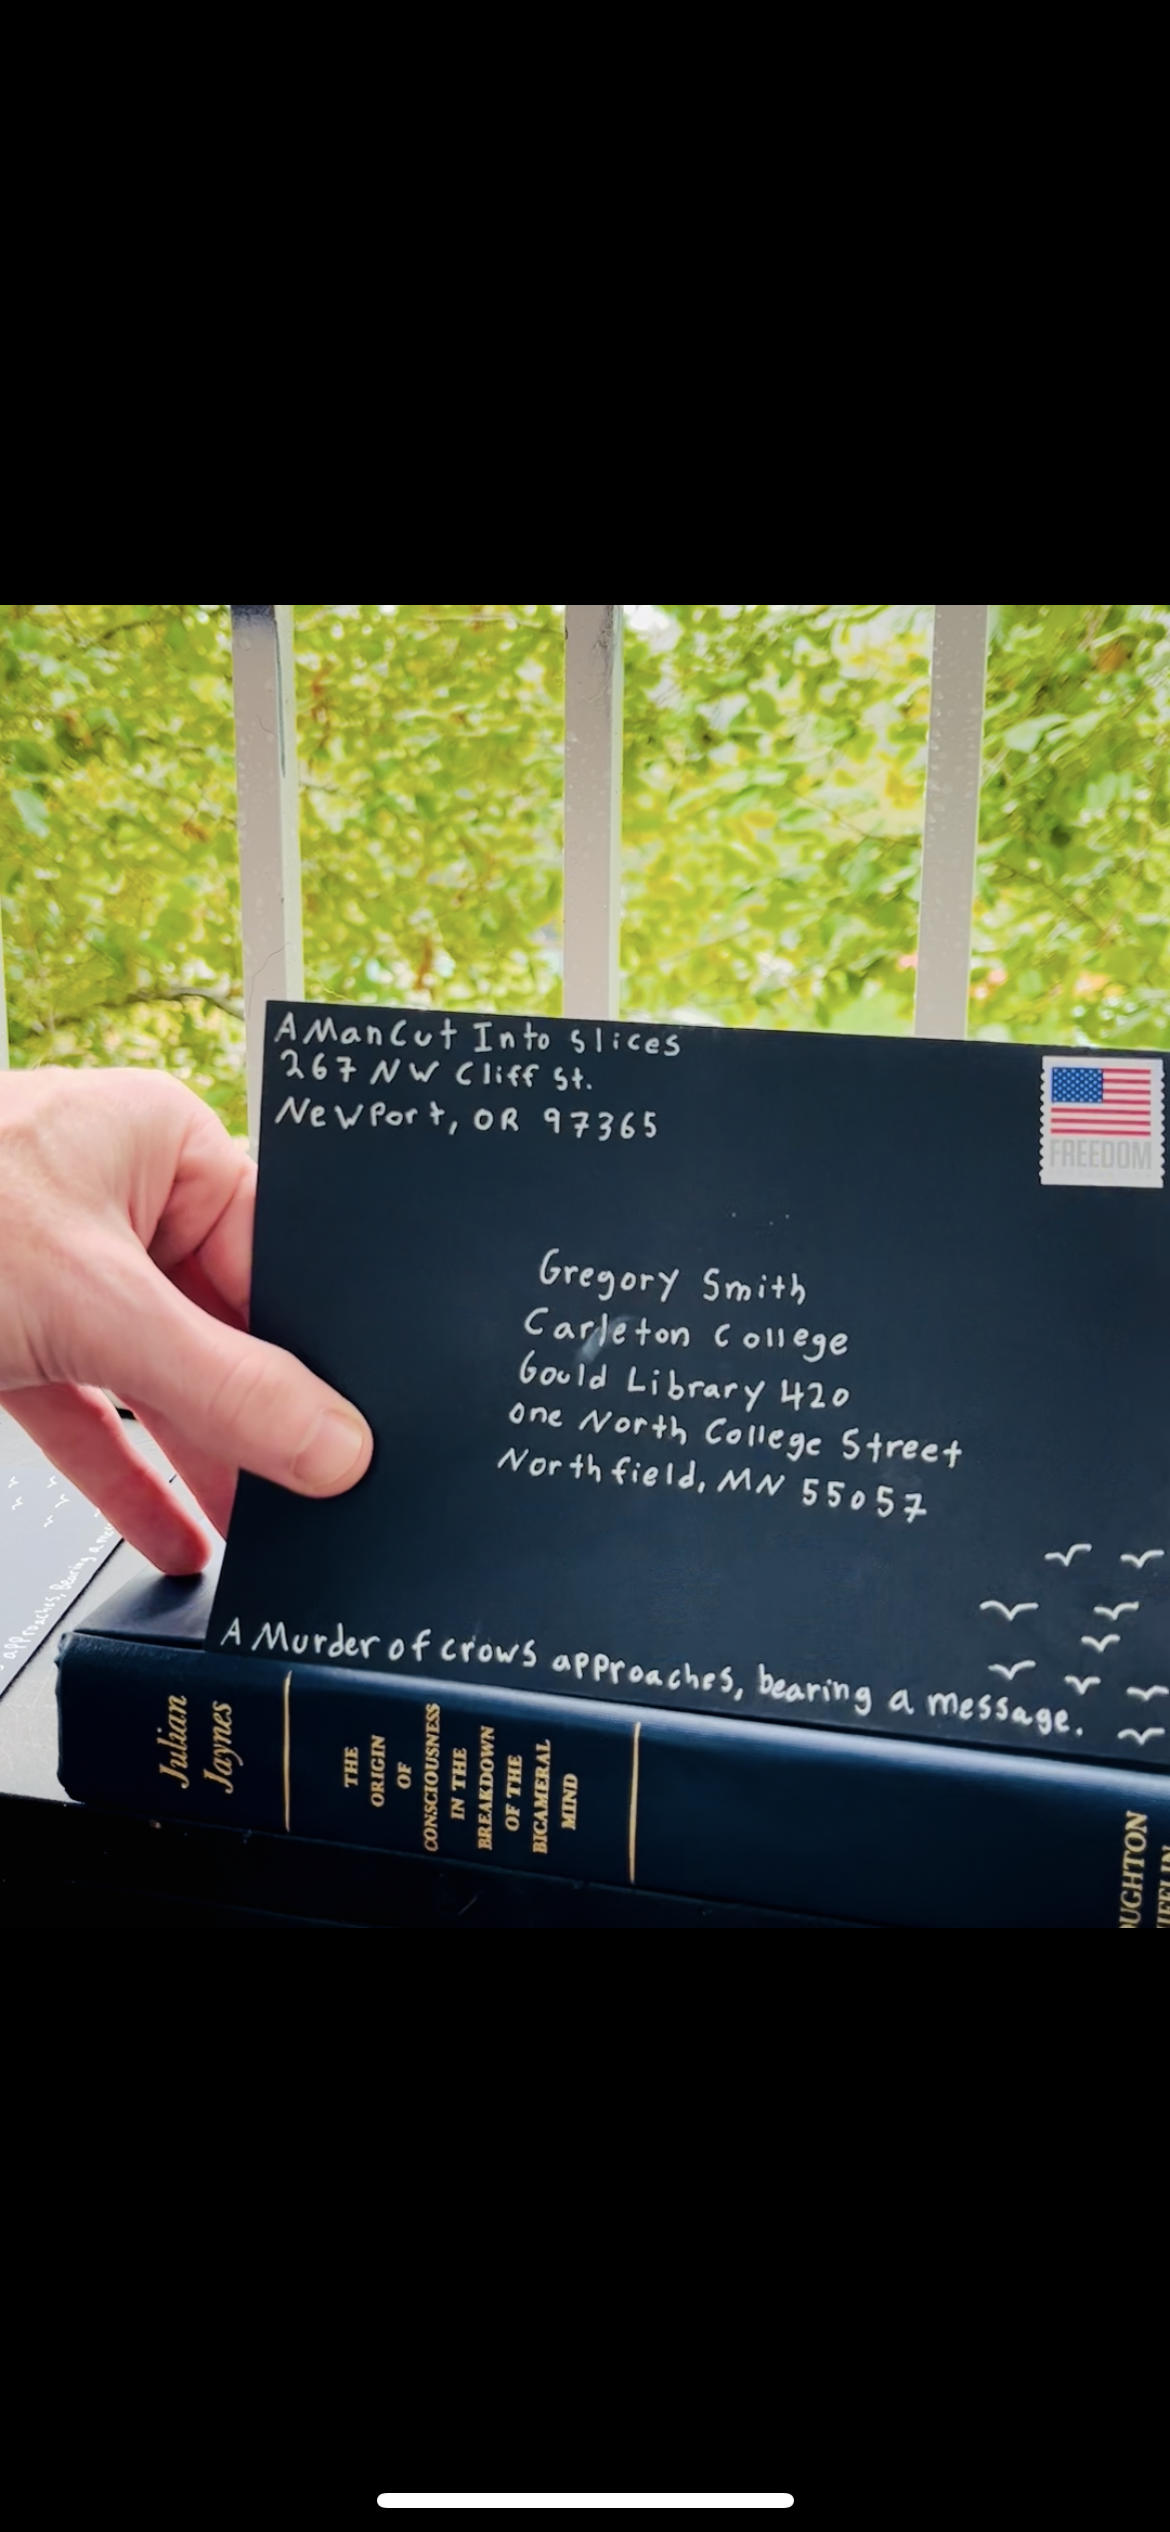 A Man Cut Into Slices
267 NW Cliff St.
Newport, OR 97365
FREEDOM
Gregory Smith
Carleton College
Gould Library 420
One North College Street
Northfield, MN 55057
A Murder of crows approaches, bearing a message.
approaches, bearing a
Julian
Jaynes
THE
ORIGIN
OF
CONSCIOUSNESS
IN THE
BREAKDOWN
OF THE
BICAMERAL
MIND
OUGHTON